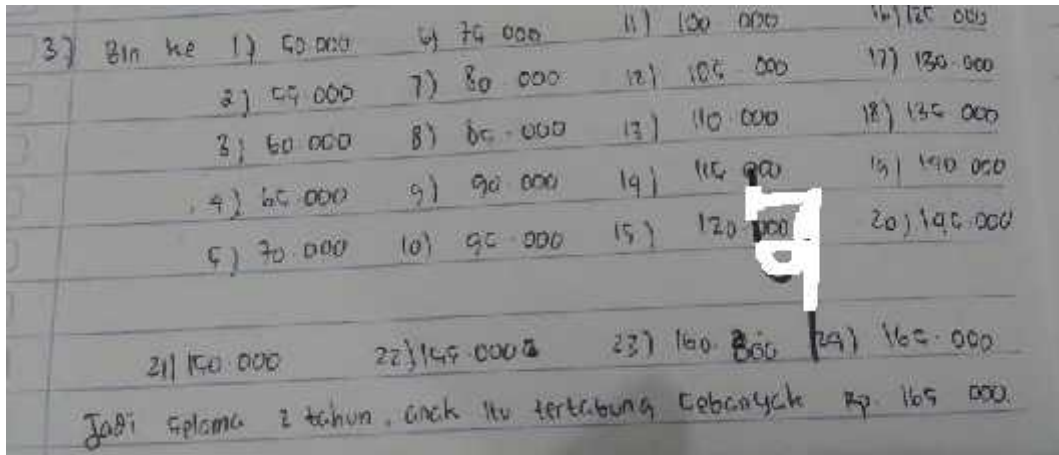 3) Bln ke 1) 50.000 6) 75 000 11) 100 000 16) 125 000
2) 55 000 7) 80 000 12) 105 000 17) 130.000
3) 60.000 8) 85.000 13) 110.000 18) 135 000
4) 65.000 9) 90.000 14) 115 000 19) 140 000
5) 70.000 10) 95.000 15) 120 000 20) 145.000
21) 150.000 22) 155.000 23) 160.000 24) 165.000
Jadi selama 2 tahun, anak itu tertabung sebanyak Rp. 165 000.